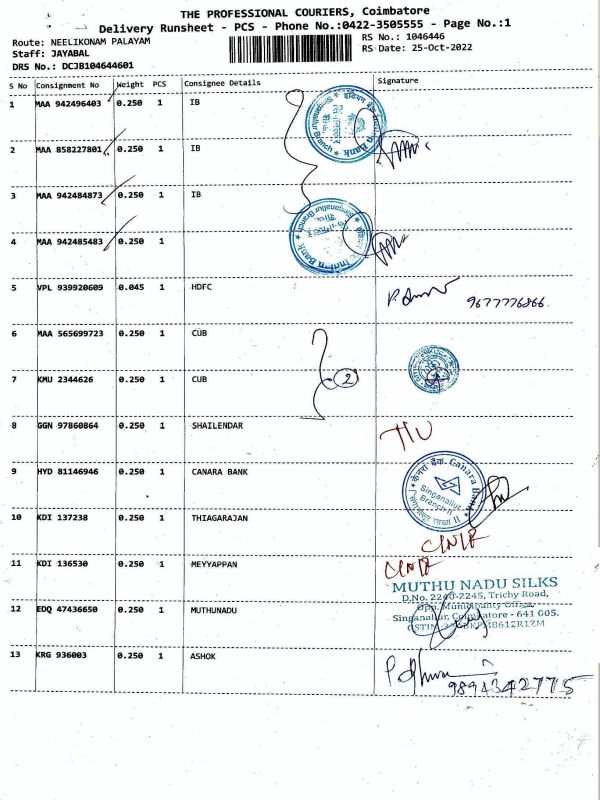 THE PROFESSIONAL COURIERS, Coimbatore
Delivery Runsheet - PCS - Phone No.:0422-3505555 - Page No.:1
Route: NEELIKONAM PALAYAM
Staff: JAYABAL
DRS No.: DCJB104644601
RS No.: 1046446
RS Date: 25-Oct-2022
S No Consignment No Weight PCS Consignee Details Signature
1 MAA 942496403 0.250 1 IB
2 MAA 858227801 0.250 1 IB
3 MAA 942484873 0.250 1 IB
4 MAA 942485483 0.250 1
Indian Bank
Singanallur Branch
5 VPL 939920609 0.045 1 HDFC
9677776866
6 MAA 565699723 0.250 1 CUB
7 KMU 2344626 0.250 1 CUB
2
8 GGN 97860864 0.250 1 SHAILENDAR
9 HYD 81146946 0.250 1 CANARA BANK
केनरा बैंक Canara Bank
Singanallur
Branch II
10 KDI 137238 0.250 1 THIAGARAJAN
11 KDI 136530 0.250 1 MEYYAPPAN
MUTHU NADU SILKS
D.No. 2240-2245, Trichy Road,
Opp. Municipality Office,
Singanallur, Coimbatore - 641 005.
12 EDQ 47436650 0.250 1 MUTHUNADU
13 KRG 936003 0.250 1 ASHOK
9894342775